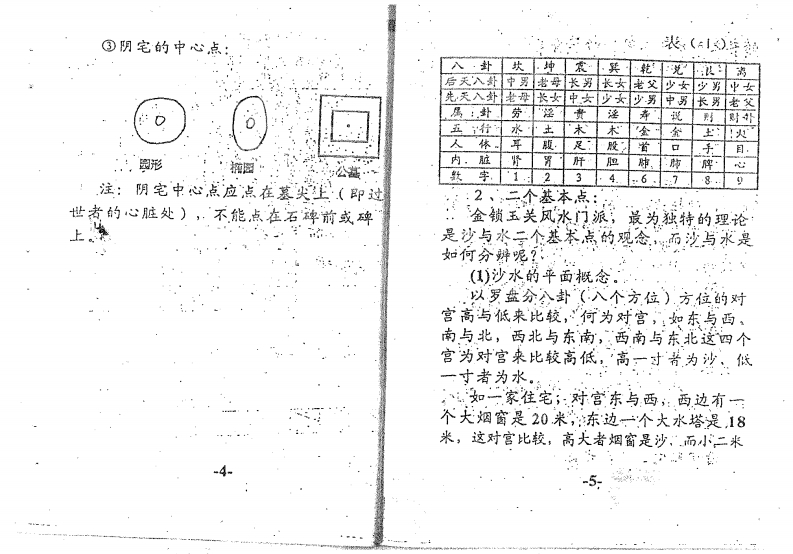 ③阴宅的中心点：
圆形
椭园
公墓
注：阴宅中心点应点在墓尖上（即过
世者的心脏处），不能点在石碑前或碑
上。
-4-
表（1）
八 卦 坎 坤 震 巽 乾 兑 艮 离
后天八卦 中男 老母 长男 长女 老父 少女 少男 中女
先天八卦 老母 长女 中女 少女 少男 中男 长男 老父
属 卦 劳 淫 贵 淫 寿 说
五 行 水 土 木 木 金 金 土 火
人 体 耳 腹 足 股 首 口 手 目
内 脏 肾 胃 肝 胆 肺 肺 脾 心
数 字 1 2 3 4 6 7 8 9
2、二个基本点：
金锁玉关风水门派，最为独特的理论
是沙与水二个基本点的观念，而沙与水是
如何分辨呢？
(1)沙水的平面概念。
以罗盘分八卦（八个方位）方位的对
宫高与低来比较，何为对宫，如东与西、
南与北，西北与东南，西南与东北这四个
宫为对宫来比较高低，高一寸者为沙、低
一寸者为水。
如一家住宅；对宫东与西，西边有一
个大烟窗是20米，东边一个大水塔是18
米，这对宫比较，高大者烟窗是沙，而小二米
-5-